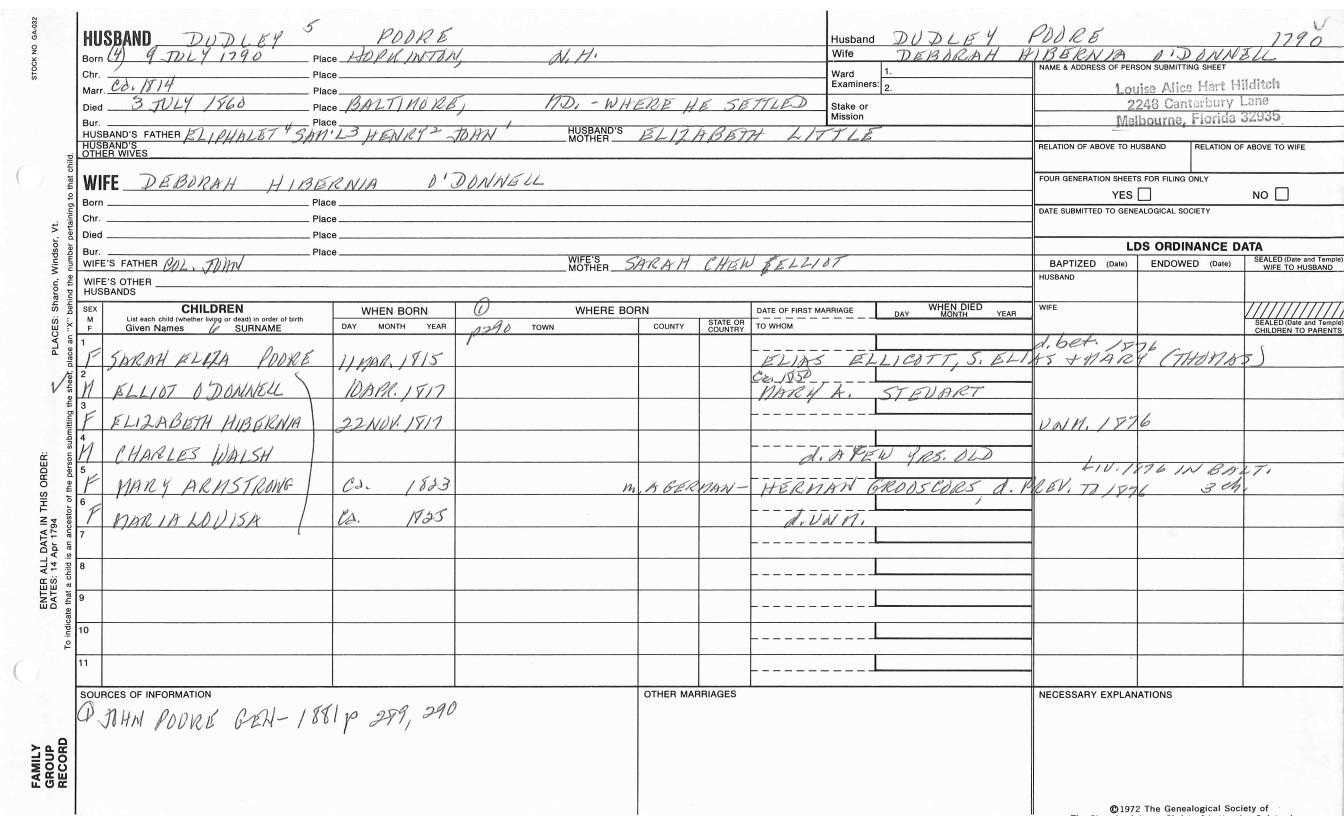 STOCK NO. GA-032
HUSBAND DUDLEY 5 POORE
Born (4) 9 JULY 1790 Place HOPKINTON, N.H.
Chr. Place
Marr. Ca. 1814 Place
Died 3 JULY 1860 Place BALTIMORE, MD. - WHERE HE SETTLED
Bur. Place
HUSBAND'S FATHER ELIPHALET 4 SAM'L 3 HENRY 2 JOHN 1 HUSBAND'S MOTHER ELIZABETH LITTLE
HUSBAND'S OTHER WIVES
WIFE DEBORAH HIBERNIA O'DONNELL
Born Place
Chr. Place
Died Place
Bur. Place
WIFE'S FATHER COL. JOHN WIFE'S MOTHER SARAH CHEW ELLIOT
WIFE'S OTHER HUSBANDS
Husband DUDLEY POORE 1790
Wife DEBORAH HIBERNIA O'DONNELL
Ward Examiners: 1.
2.
Stake or Mission
NAME & ADDRESS OF PERSON SUBMITTING SHEET
Louise Alice Hart Hilditch
2248 Canterbury Lane
Melbourne, Florida 32935
RELATION OF ABOVE TO HUSBAND RELATION OF ABOVE TO WIFE
FOUR GENERATION SHEETS FOR FILING ONLY
YES NO
DATE SUBMITTED TO GENEALOGICAL SOCIETY
LDS ORDINANCE DATA
BAPTIZED (Date) ENDOWED (Date) SEALED (Date and Temple) WIFE TO HUSBAND
HUSBAND
WIFE
SEALED (Date and Temple) CHILDREN TO PARENTS
SEX M F CHILDREN WHEN BORN ① WHERE BORN DATE OF FIRST MARRIAGE WHEN DIED
List each child (whether living or dead) in order of birth
Given Names 6 SURNAME DAY MONTH YEAR p290 TOWN COUNTY STATE OR COUNTRY TO WHOM DAY MONTH YEAR
1 F SARAH ELIZA POORE 11 MAR. 1815 ELIAS ELLICOTT, S. ELIAS & MARY (THOMAS) d. bet. 1876
2 M ELLIOT O'DONNELL 10 APR. 1817 Ca. 1850 MARY A. STEUART
3 F ELIZABETH HIBERNIA 22 NOV. 1817 UNM. 1876
4 M CHARLES WALSH d. A FEW YRS. OLD
5 F MARY ARMSTRONG Ca. 1823 m. A GERMAN - HERMAN d. PREV. TO 1876 LIV. 1876 IN BALT. 3 ch.
6 F MARIA LOUISA Ca. 1825 d. UNM.
7
8
9
10
11
SOURCES OF INFORMATION OTHER MARRIAGES NECESSARY EXPLANATIONS
① JOHN POORE GEN- 1881 p 289, 290
©1972 The Genealogical Society of
PLACES: Sharon, Windsor, Vt.
ENTER ALL DATA IN THIS ORDER:
DATES: 14 Apr 1794
To indicate that a child is an ancestor of the person submitting the sheet, place an "X" behind the number pertaining to that child.
FAMILY
GROUP
RECORD